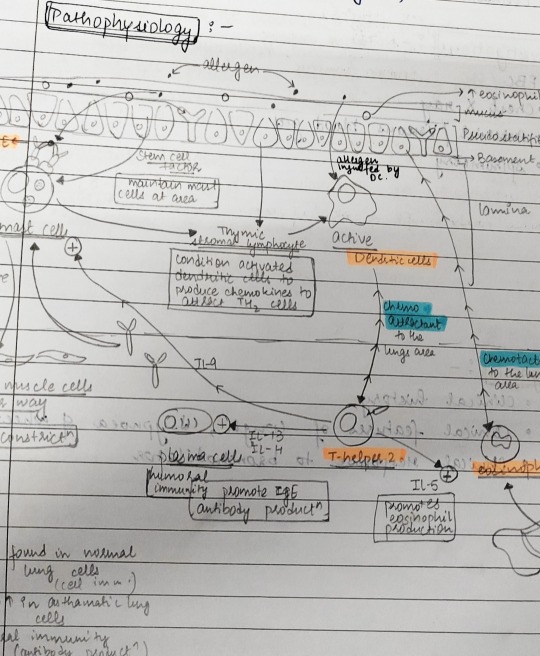 Pathophysiology :-
allergen
↑ eosinophil
mucus
Basement
Stem cell
factor
maintain mast
cells at area
allergen
ingulfed by
DC.
lamina
mast cells
Thymic
stromal lymphocyte
active
Dendritic cells
condition activated
dendritic cells to
produce chemokines to
attract TH2 cells
chemo
attractant
to the
lungs area
IL-9
muscle cells
way
constrictⁿ
plasma cells
IL-13
IL-4
T-helper 2
humoral
immunity
promote IgE
antibody productⁿ
IL-5
promotes
eosinophil
production
to the lun
area
eosinoph
found in normal
lung cells
(cell imm.)
↑ in asthamatic lung
cells
al immunity
(antibody product↑)